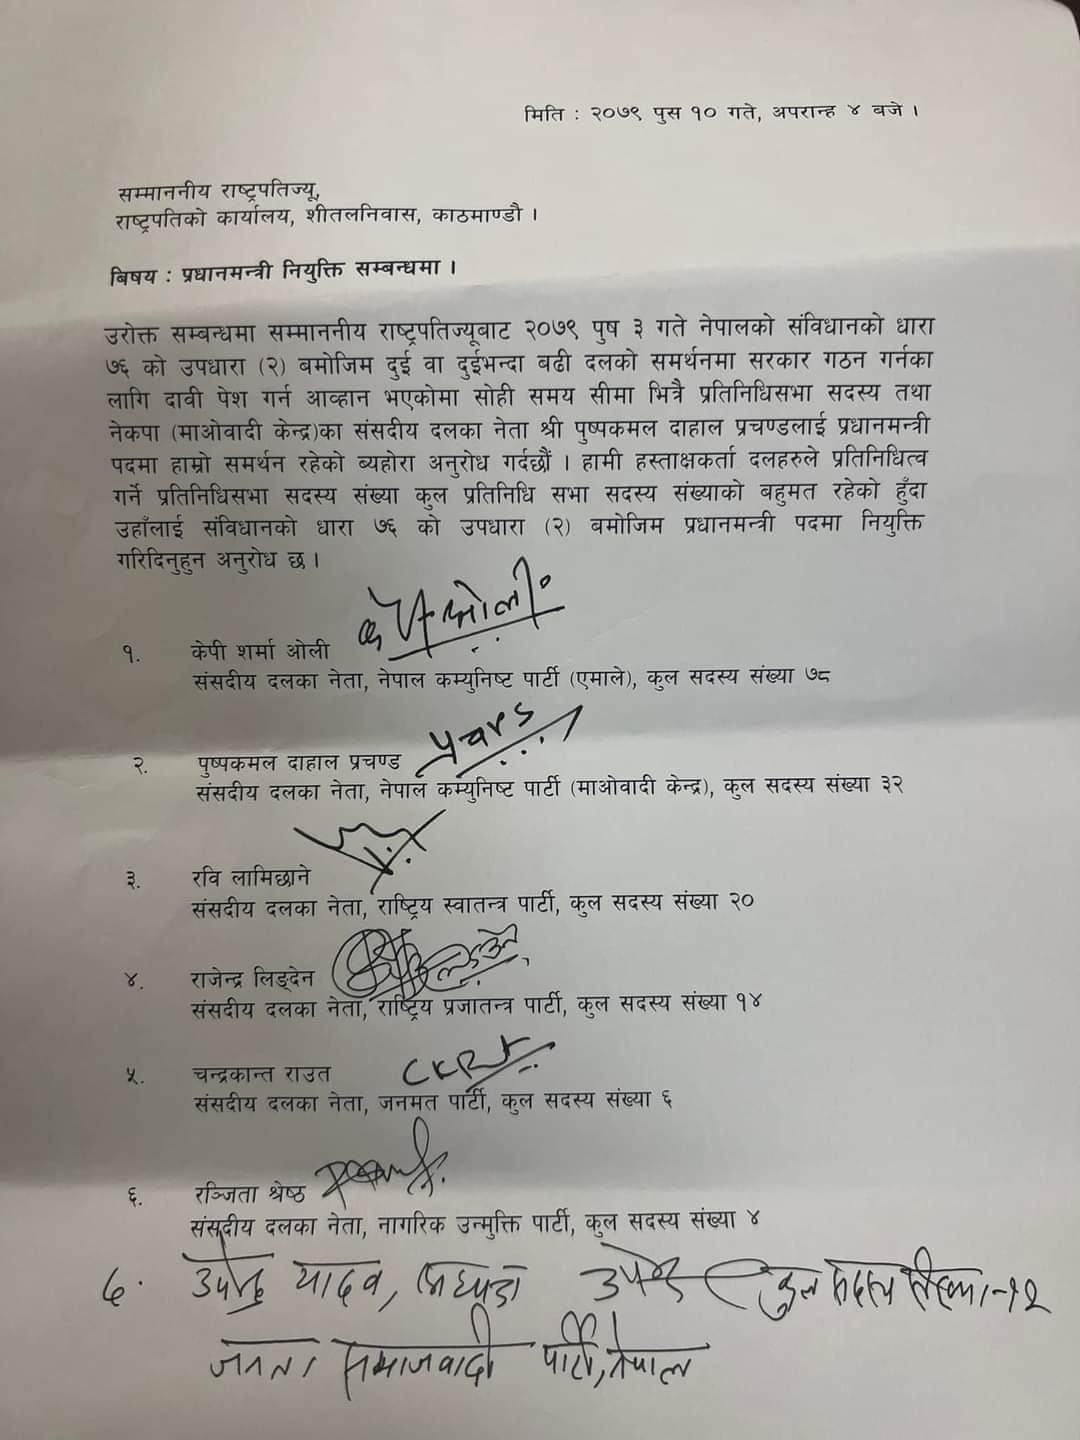 मिति : २०७९ पुस १० गते, अपरान्ह ४ बजे ।
सम्माननीय राष्ट्रपतिज्यू,
राष्ट्रपतिको कार्यालय, शीतलनिवास, काठमाण्डौ ।
बिषय : प्रधानमन्त्री नियुक्ति सम्बन्धमा ।
उरोक्त सम्बन्धमा सम्माननीय राष्ट्रपतिज्यूबाट २०७९ पुष ३ गते नेपालको संविधानको धारा
७६ को उपधारा (२) बमोजिम दुई वा दुईभन्दा बढी दलको समर्थनमा सरकार गठन गर्नका
लागि दावी पेश गर्न आव्हान भएकोमा सोही समय सीमा भित्रै प्रतिनिधिसभा सदस्य तथा
नेकपा (माओवादी केन्द्र)का संसदीय दलका नेता श्री पुष्पकमल दाहाल प्रचण्डलाई प्रधानमन्त्री
पदमा हाम्रो समर्थन रहेको ब्यहोरा अनुरोध गर्दछौं । हामी हस्ताक्षकर्ता दलहरुले प्रतिनिधित्व
गर्ने प्रतिनिधिसभा सदस्य संख्या कुल प्रतिनिधि सभा सदस्य संख्याको बहुमत रहेको हुँदा
उहाँलाई संविधानको धारा ७६ को उपधारा (२) बमोजिम प्रधानमन्त्री पदमा नियुक्ति
गरिदिनुहुन अनुरोध छ ।
१. केपी शर्मा ओली के पी ओली
संसदीय दलका नेता, नेपाल कम्युनिष्ट पार्टी (एमाले), कुल सदस्य संख्या ७८
२. पुष्पकमल दाहाल प्रचण्ड
संसदीय दलका नेता, नेपाल कम्युनिष्ट पार्टी (माओवादी केन्द्र), कुल सदस्य संख्या ३२
३. रवि लामिछाने
संसदीय दलका नेता, राष्ट्रिय स्वातन्त्र पार्टी, कुल सदस्य संख्या २०
४. राजेन्द्र लिङ्देन
संसदीय दलका नेता, राष्ट्रिय प्रजातन्त्र पार्टी, कुल सदस्य संख्या १४
५. चन्द्रकान्त राउत
संसदीय दलका नेता, जनमत पार्टी, कुल सदस्य संख्या ६
६. रञ्जिता श्रेष्ठ
संसदीय दलका नेता, नागरिक उन्मुक्ति पार्टी, कुल सदस्य संख्या ४
७. उपेन्द्र यादव, अध्यक्ष उपेन्द्र कुल सदस्य संख्या-१२
जनता समाजवादी पार्टी, नेपाल